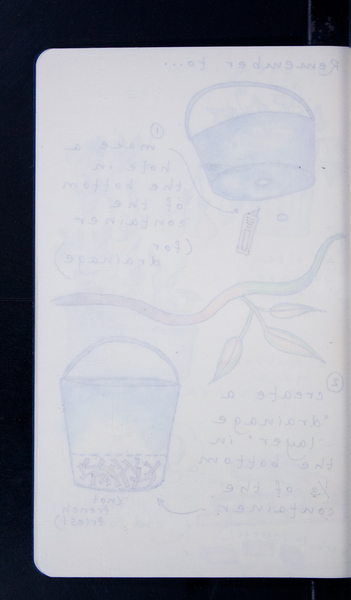 Remember to...
①
make a
hole in
the bottom
of the
container
(for
drainage)
②
create a
"drainage
layer" in
the bottom
⅓ of the
container
(not
french
fries!)